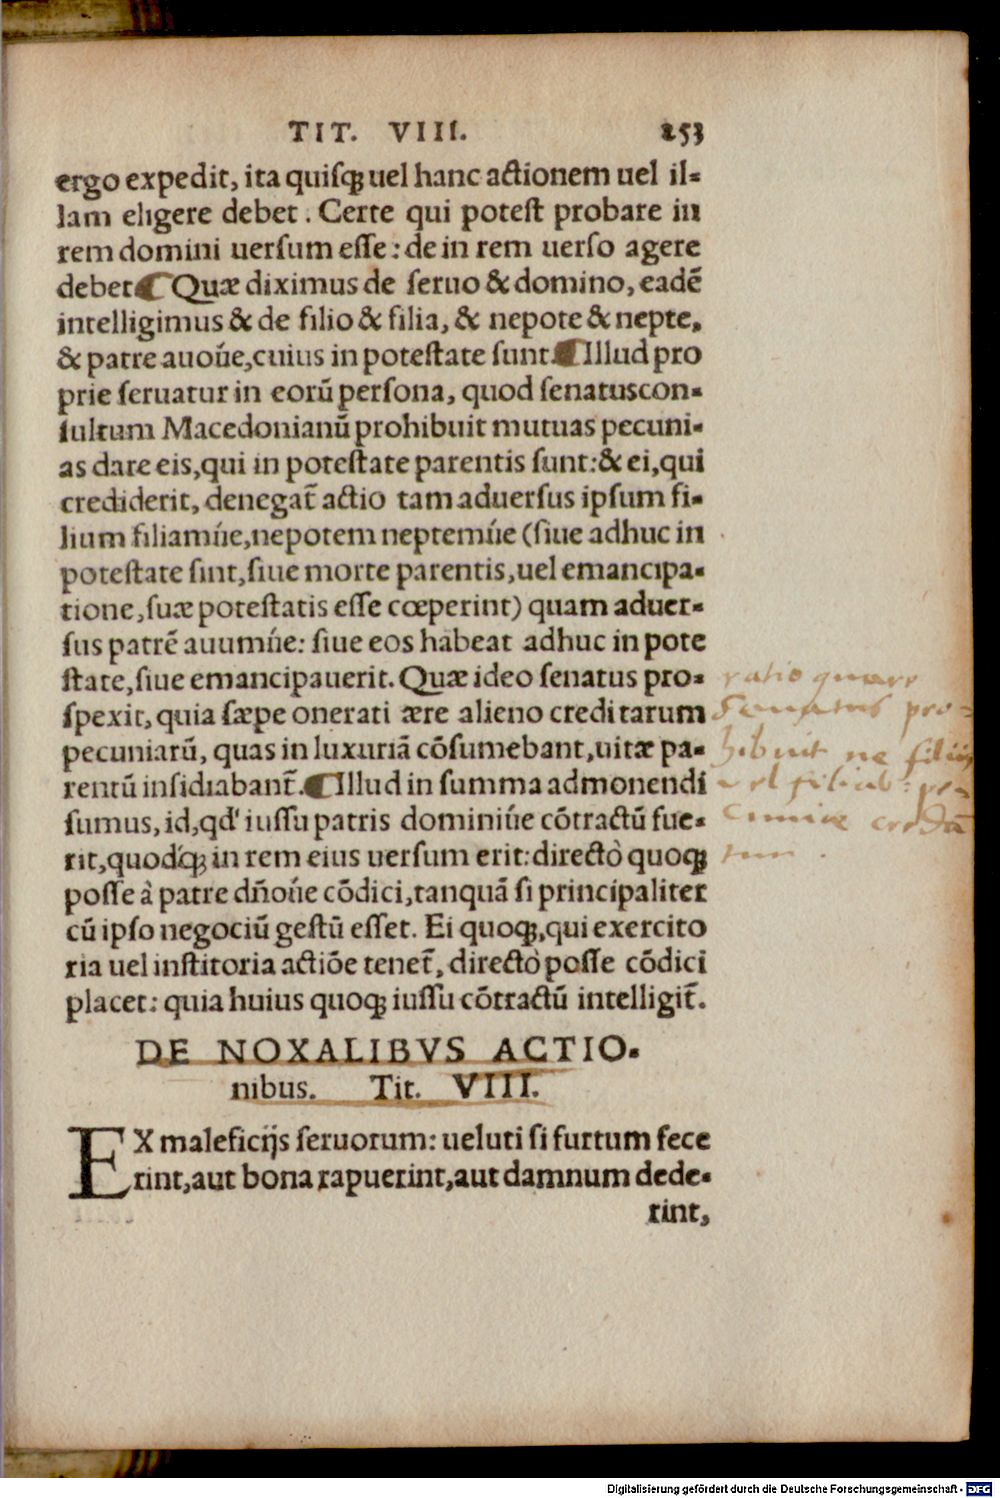 TIT. VIII. 253
ergo expedit, ita quiſq; uel hanc actionem uel il-
lam eligere debet. Certe qui poteſt probare in
rem domini uerſum eſſe: de in rem uerſo agere
debet ¶ Quæ diximus de ſeruo & domino, eadē
intelligimus & de filio & filia, & nepote & nepte,
& patre auoúe, cuius in poteſtate ſunt. ¶ Illud pro
prie ſeruatur in eorū perſona, quod ſenatuscon-
ſultum Macedonianū prohibuit mutuas pecuni-
as dare eis, qui in poteſtate parentis ſunt: & ei, qui
crediderit, denegat̄ actio tam aduerſus ipſum fi-
lium filiamúe, nepotem neptemúe (ſiue adhuc in
poteſtate ſint, ſiue morte parentis, uel emancipa-
tione, ſuæ poteſtatis eſſe cœperint) quam aduer-
ſus patrē auumúe: ſiue eos habeat adhuc in pote
ſtate, ſiue emancipauerit. Quæ ideo ſenatus pro-
ſpexit, quia ſæpe onerati ære alieno creditarum
pecuniarū, quas in luxuriā cōſumebant, uitæ pa-
rentū inſidiabant̄. ¶ Illud in ſumma admonendi
ſumus, id, qd' iuſſu patris dominiúe cōtractū fue-
rit, quodq́; in rem eius uerſum erit: directò quoq;
poſſe à patre dñoúe cōdici, tanquā ſi principaliter
cū ipſo negociū geſtū eſſet. Ei quoq;, qui exercito
ria uel inſtitoria actiōe tenet̄, directò poſſe cōdici
placet: quia huius quoq; iuſſu cōtractū intelligit̄.
ratio quare
Senatus pro-
hibuit ne filiis
vel filiab: pe-
cuniæ credā
tur.
DE NOXALIBVS ACTIO-
nibus. Tit. VIII.
EX maleficijs ſeruorum: ueluti ſi furtum fece
rint, aut bona rapuerint, aut damnum dede-
rint,
Digitalisierung gefördert durch die Deutsche Forschungsgemeinschaft - DFG